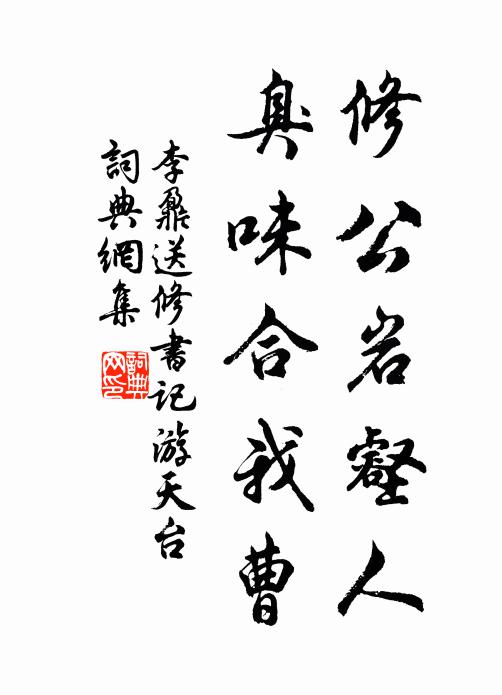 修公岩壑人
臭味合我曹
李鼐送修書記游天台
詞典網集
詞典
网印